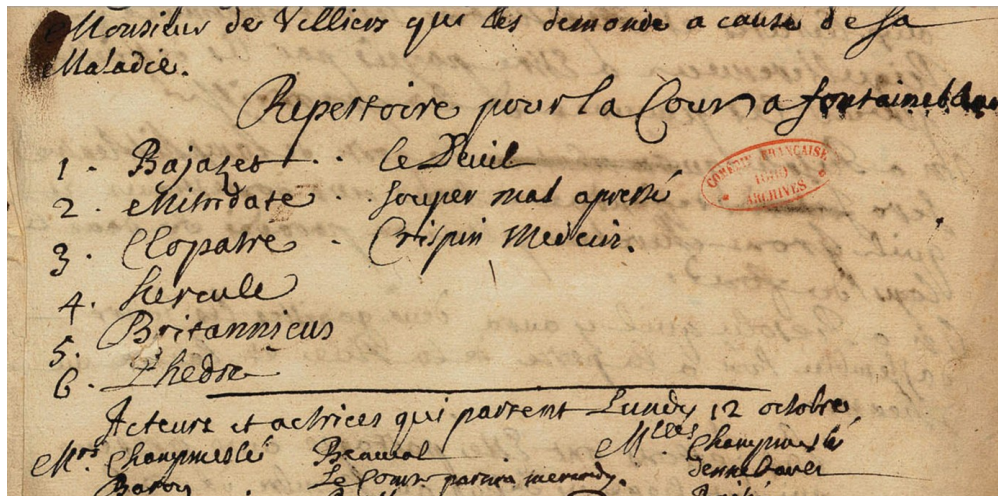 Monsieur de Villiers qui les demande a cause de sa
Maladie.
Repertoire pour la Cour a fontainebleau
1 . Bajazet . . le Deuil
2 . Mitridate . souper mal apresté
3 . Cleopatre . Crispin Medecin.
4 . Hercule
5 . Britannicus
6 . Phedre
COMEDIE FRANÇAISE
1680
ARCHIVES
Acteurs et actrices qui partent Lundy 12 octobre
Mrs Champmeslé Beauval Mlles Champmeslé
Baron Le Comte partira mercredy. dennebaut